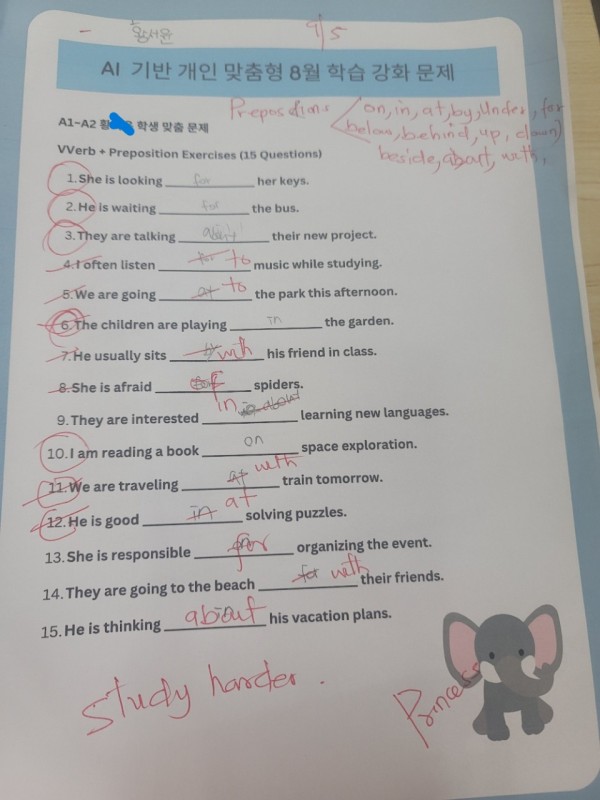 황서윤
9/5
AI 기반 개인 맞춤형 8월 학습 강화 문제
Prepositions < on, in, at, by, under, for
below, behind, up, down)
beside, about, with,
A1~A2 황 학생 맞춤 문제
VVerb + Preposition Exercises (15 Questions)
1. She is looking for her keys.
2. He is waiting for the bus.
3. They are talking about their new project.
4. I often listen for to music while studying.
5. We are going at to the park this afternoon.
6. The children are playing in the garden.
7. He usually sits by with his friend in class.
8. She is afraid of spiders.
9. They are interested in about learning new languages.
10. I am reading a book on space exploration.
11. We are traveling at with train tomorrow.
12. He is good in at solving puzzles.
13. She is responsible for organizing the event.
14. They are going to the beach for with their friends.
15. He is thinking about his vacation plans.
Study harder.
Princess